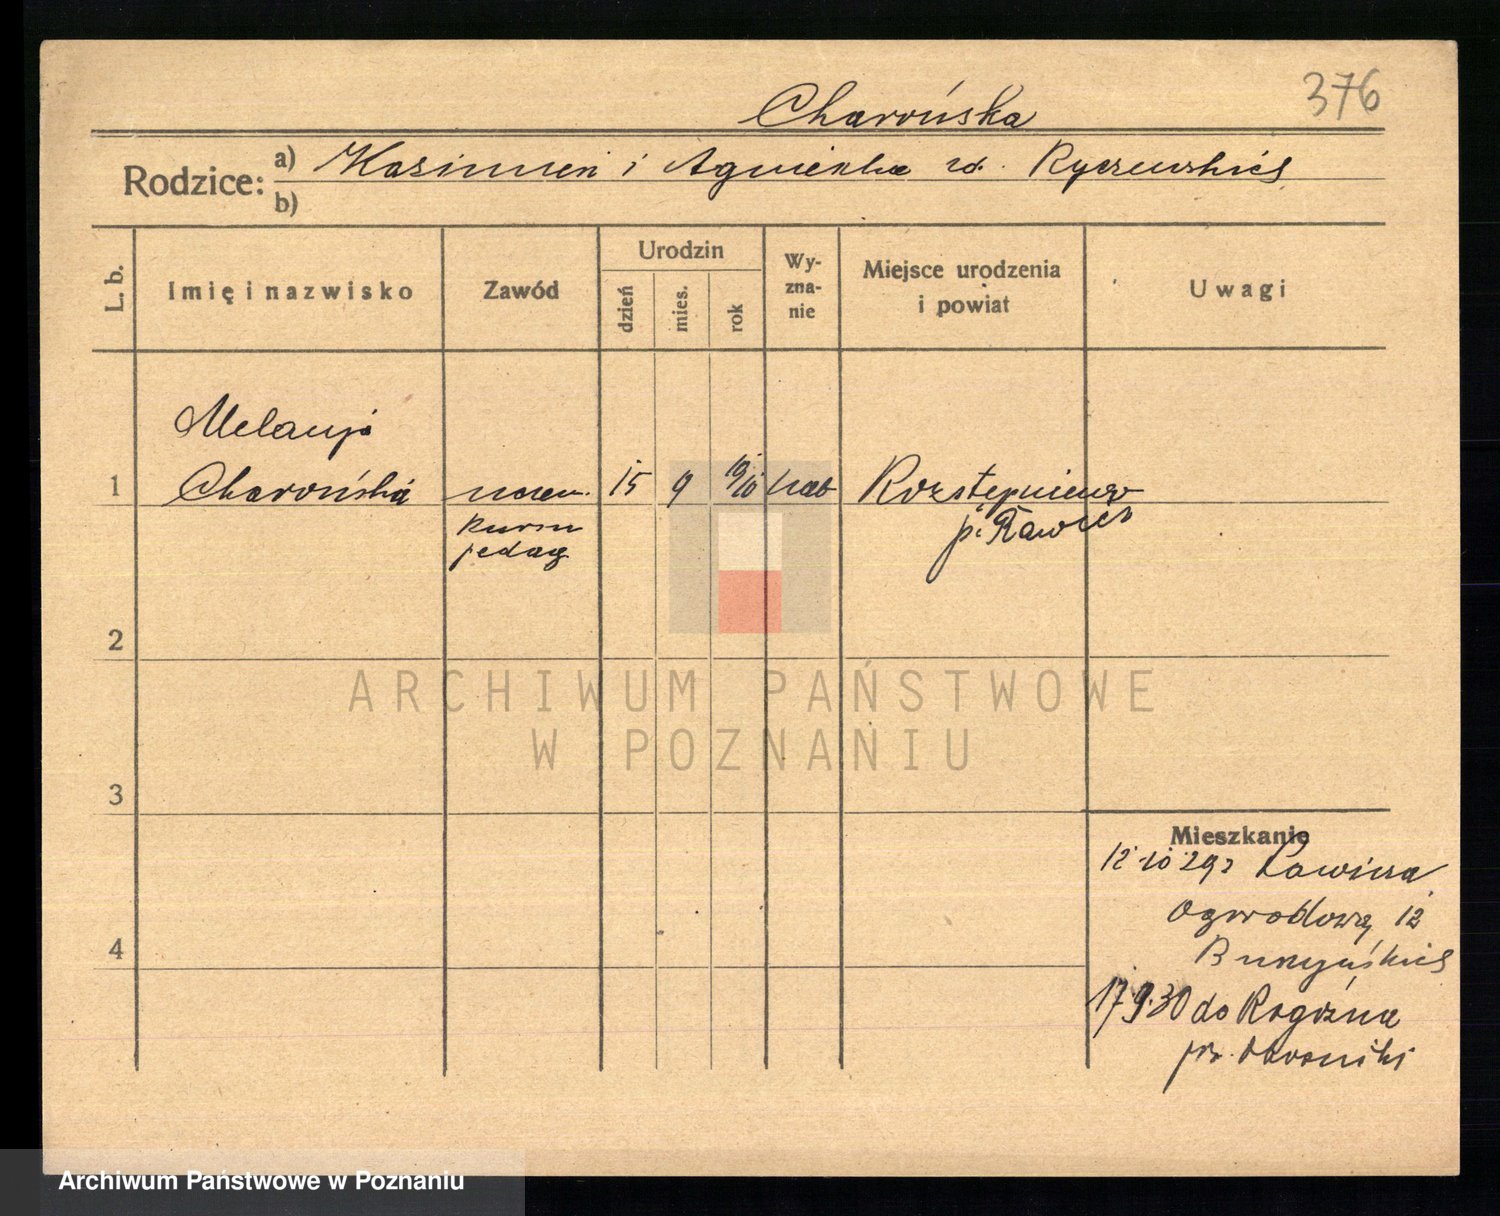 376
Charońska
Rodzice: a) Kazimierz i Agnieszka zd. Ryczewskich
b)
L. b. Imię i nazwisko Zawód Urodzin dzień mies. rok Wyznanie Miejsce urodzenia i powiat Uwagi
Melanja
1 Charońska uczen. 15 9 1910 kat Rozstępniewo
kursu p. Rawicz
pedag
2
3
4
Mieszkanie
12 10 29 z Rawicza
Ogrodowa 12
17.9.30 do Rogoźna
ARCHIWUM PAŃSTWOWE
W POZNANIU
Archiwum Państwowe w Poznaniu